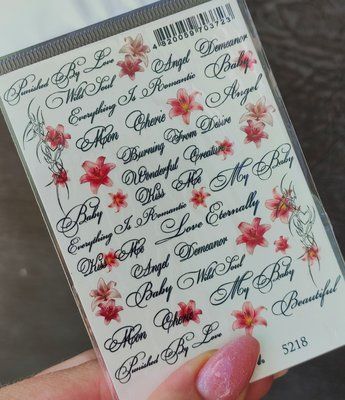 4820059703723
Punished By Love
Angel Demeanor
Wild Soul
Baby
Everything Is Romantic
Angel
Mon Cherie
Burning From Desire
Wonderful Creature
Kiss Me
My Baby
Baby
Everything Is Romantic
Love Eternally
Kiss Me
Angel Demeanor
Baby
Wild Soul
My Baby
Mon Cherie
Beautiful
Punished By Love
5218